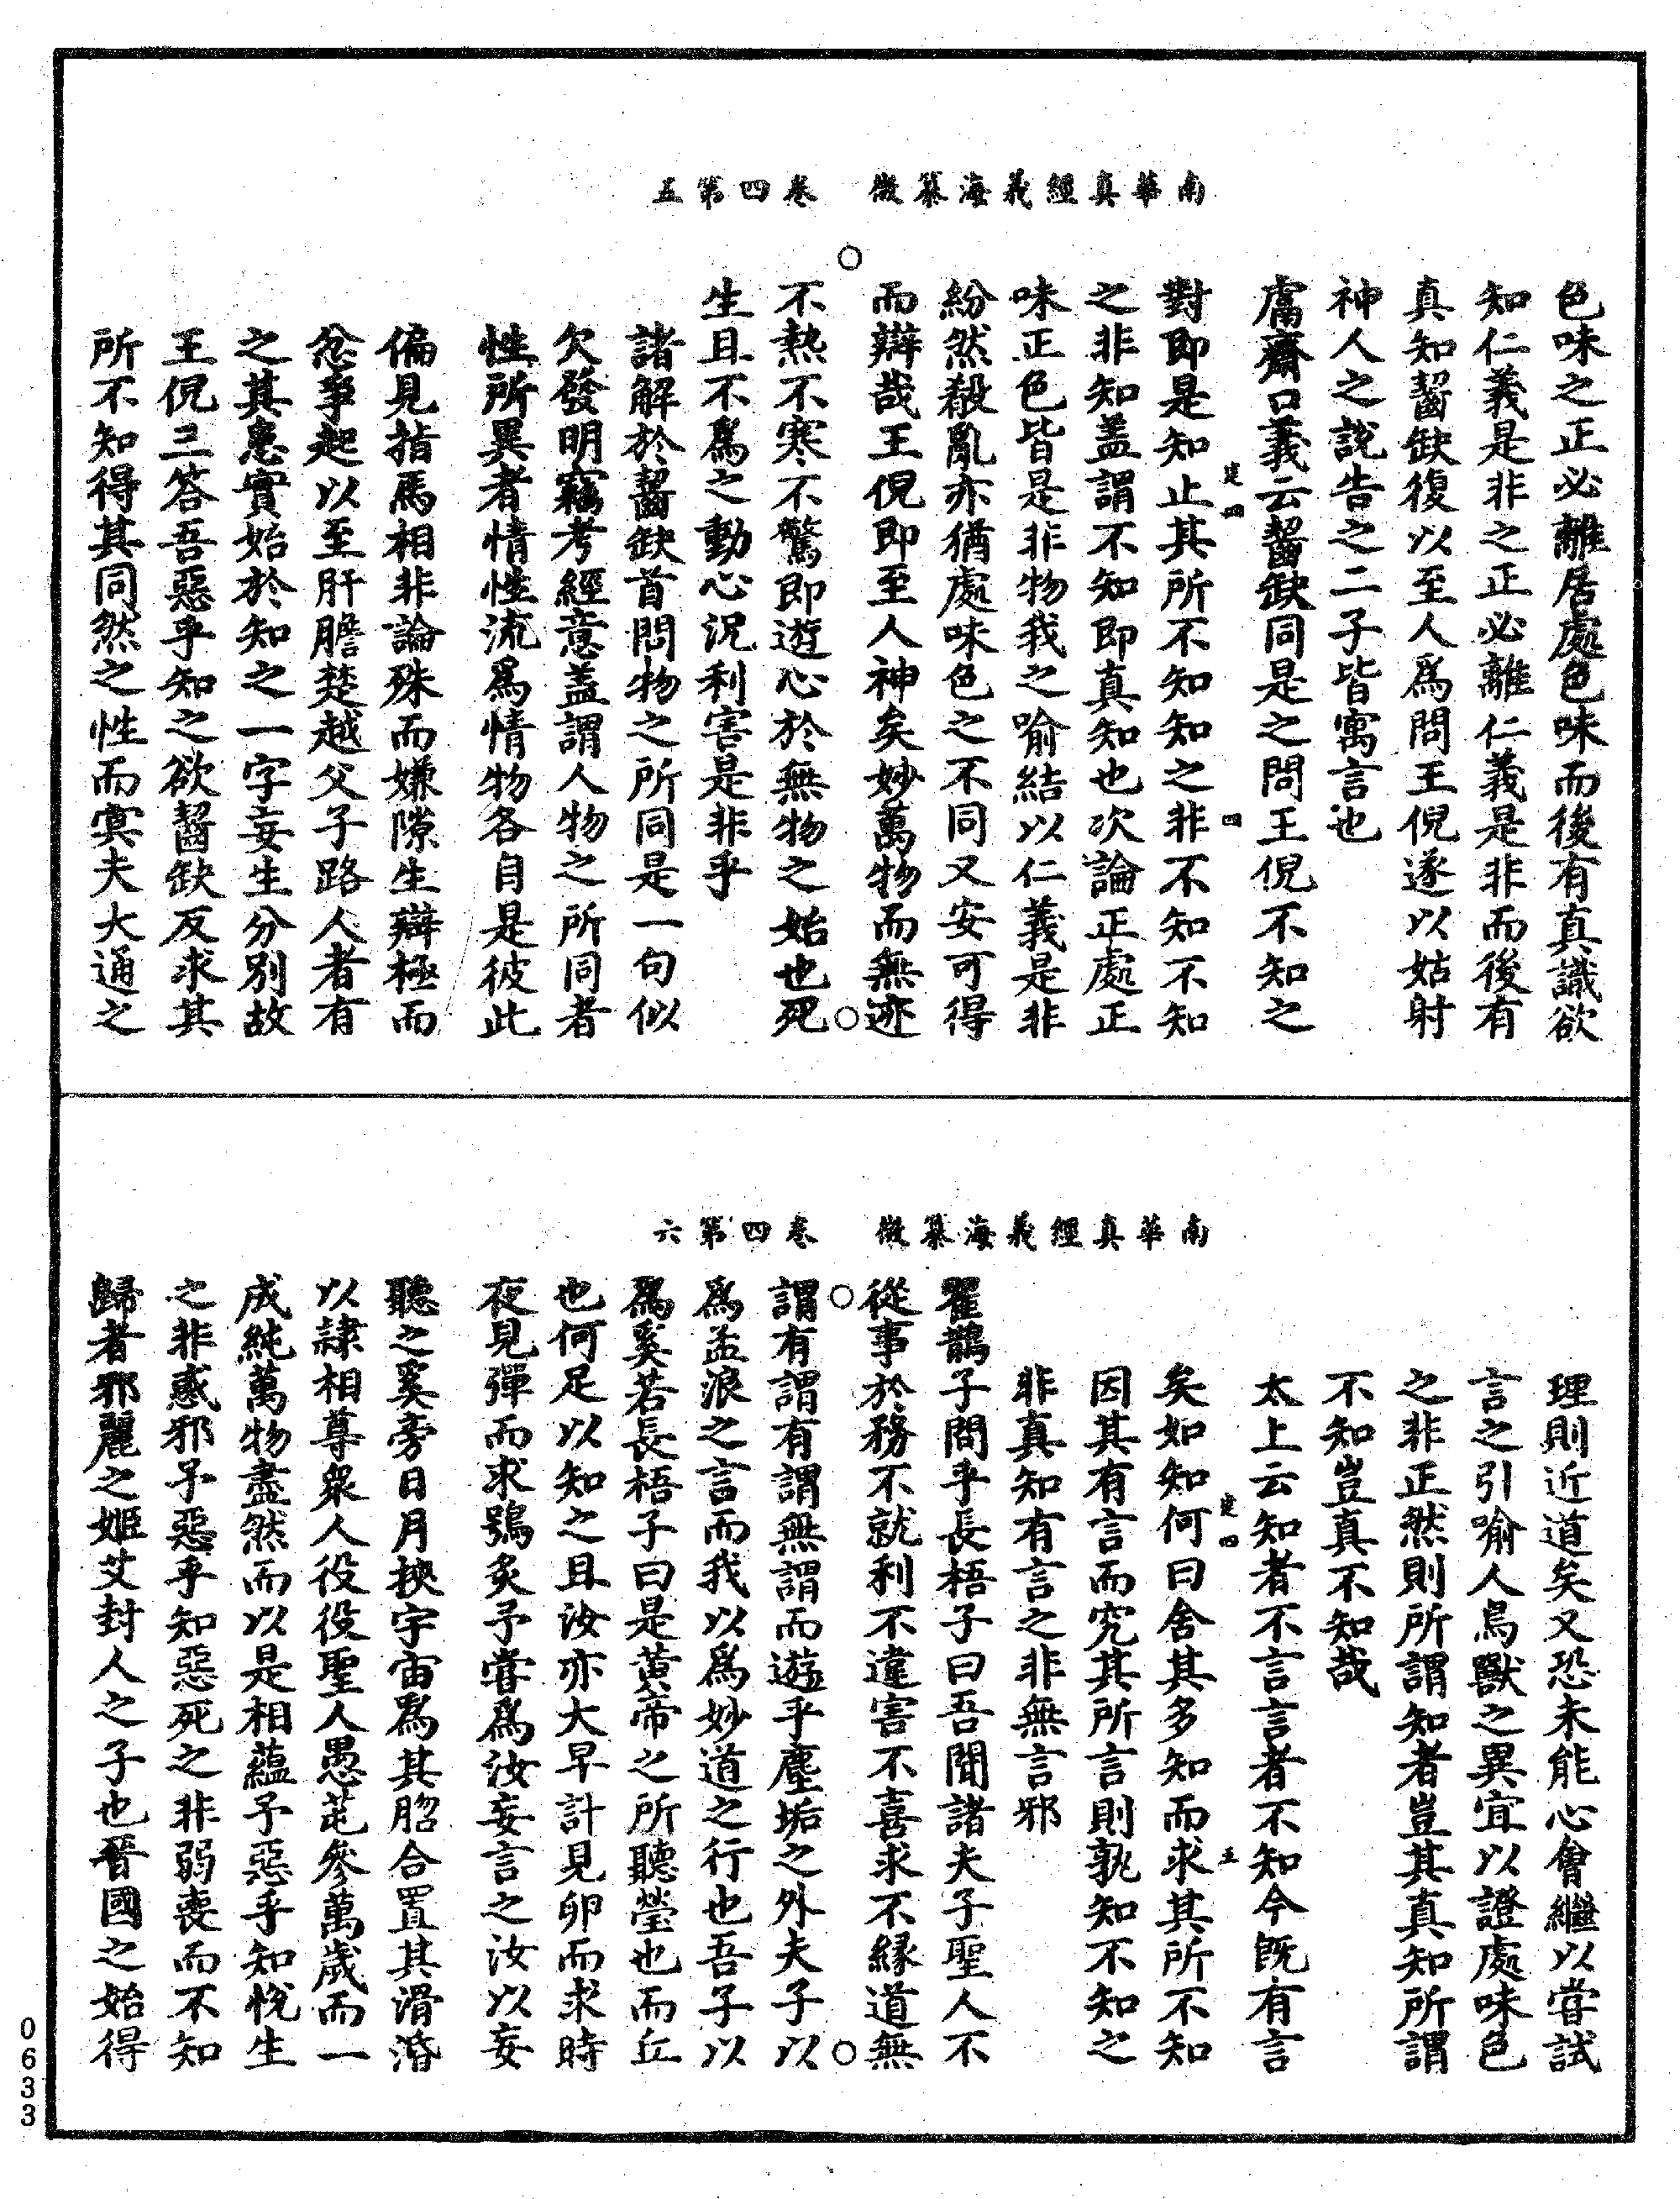 南華真經義海纂微　卷四第五
色味之正必離居處色味而後有真識欲
知仁義是非之正必離仁義是非而後有
真知齧缺復以至人爲問王倪遂以姑射
神人之說告之二子皆寓言也
鬳齋口義云齧缺同是之問王倪不知之
建四
四
對即是知止其所不知知之非不知不知
之非知盖謂不知即真知也次論正處正
味正色皆是非物我之喻結以仁義是非
紛然殽亂亦猶處味色之不同又安可得
而辯哉王倪即至人神矣妙萬物而無迹
不熱不寒不驚即遊心於無物之始也死
生且不爲之動心況利害是非乎
諸解於齧缺首問物之所同是一句似
欠發明竊考經意盖謂人物之所同者
性所異者情性流爲情物各自是彼此
偏見指馬相非論殊而嫌隙生辯極而
忿爭起以至肝膽楚越父子路人者有
之其患實始於知之一字妄生分別故
王倪三答吾惡乎知之欲齧缺反求其
所不知得其同然之性而冥夫大通之
南華真經義海纂微　卷四第六
理則近道矣又恐未能心會繼以嘗試
言之引喻人鳥獸之異宜以證處味色
之非正然則所謂知者豈其真知所謂
不知豈真不知哉
太上云知者不言言者不知今既有言
建四
五
矣如知何曰舍其多知而求其所不知
因其有言而究其所言則孰知不知之
非真知有言之非無言邪
瞿鵲子問乎長梧子曰吾聞諸夫子聖人不
從事於務不就利不違害不喜求不緣道無
謂有謂有謂無謂而遊乎塵垢之外夫子以
爲孟浪之言而我以爲妙道之行也吾子以
爲奚若長梧子曰是黄帝之所聽瑩也而丘
也何足以知之且汝亦大早計見卵而求時
夜見彈而求鴞炙予嘗爲汝妄言之汝以妄
聽之奚旁日月挾宇宙爲其脗合置其滑涽
以隸相尊衆人役役聖人愚芚參萬歲而一
成純萬物盡然而以是相藴予惡乎知悅生
之非惑邪予惡乎知惡死之非弱喪而不知
歸者邪麗之姬艾封人之子也晉國之始得
0633